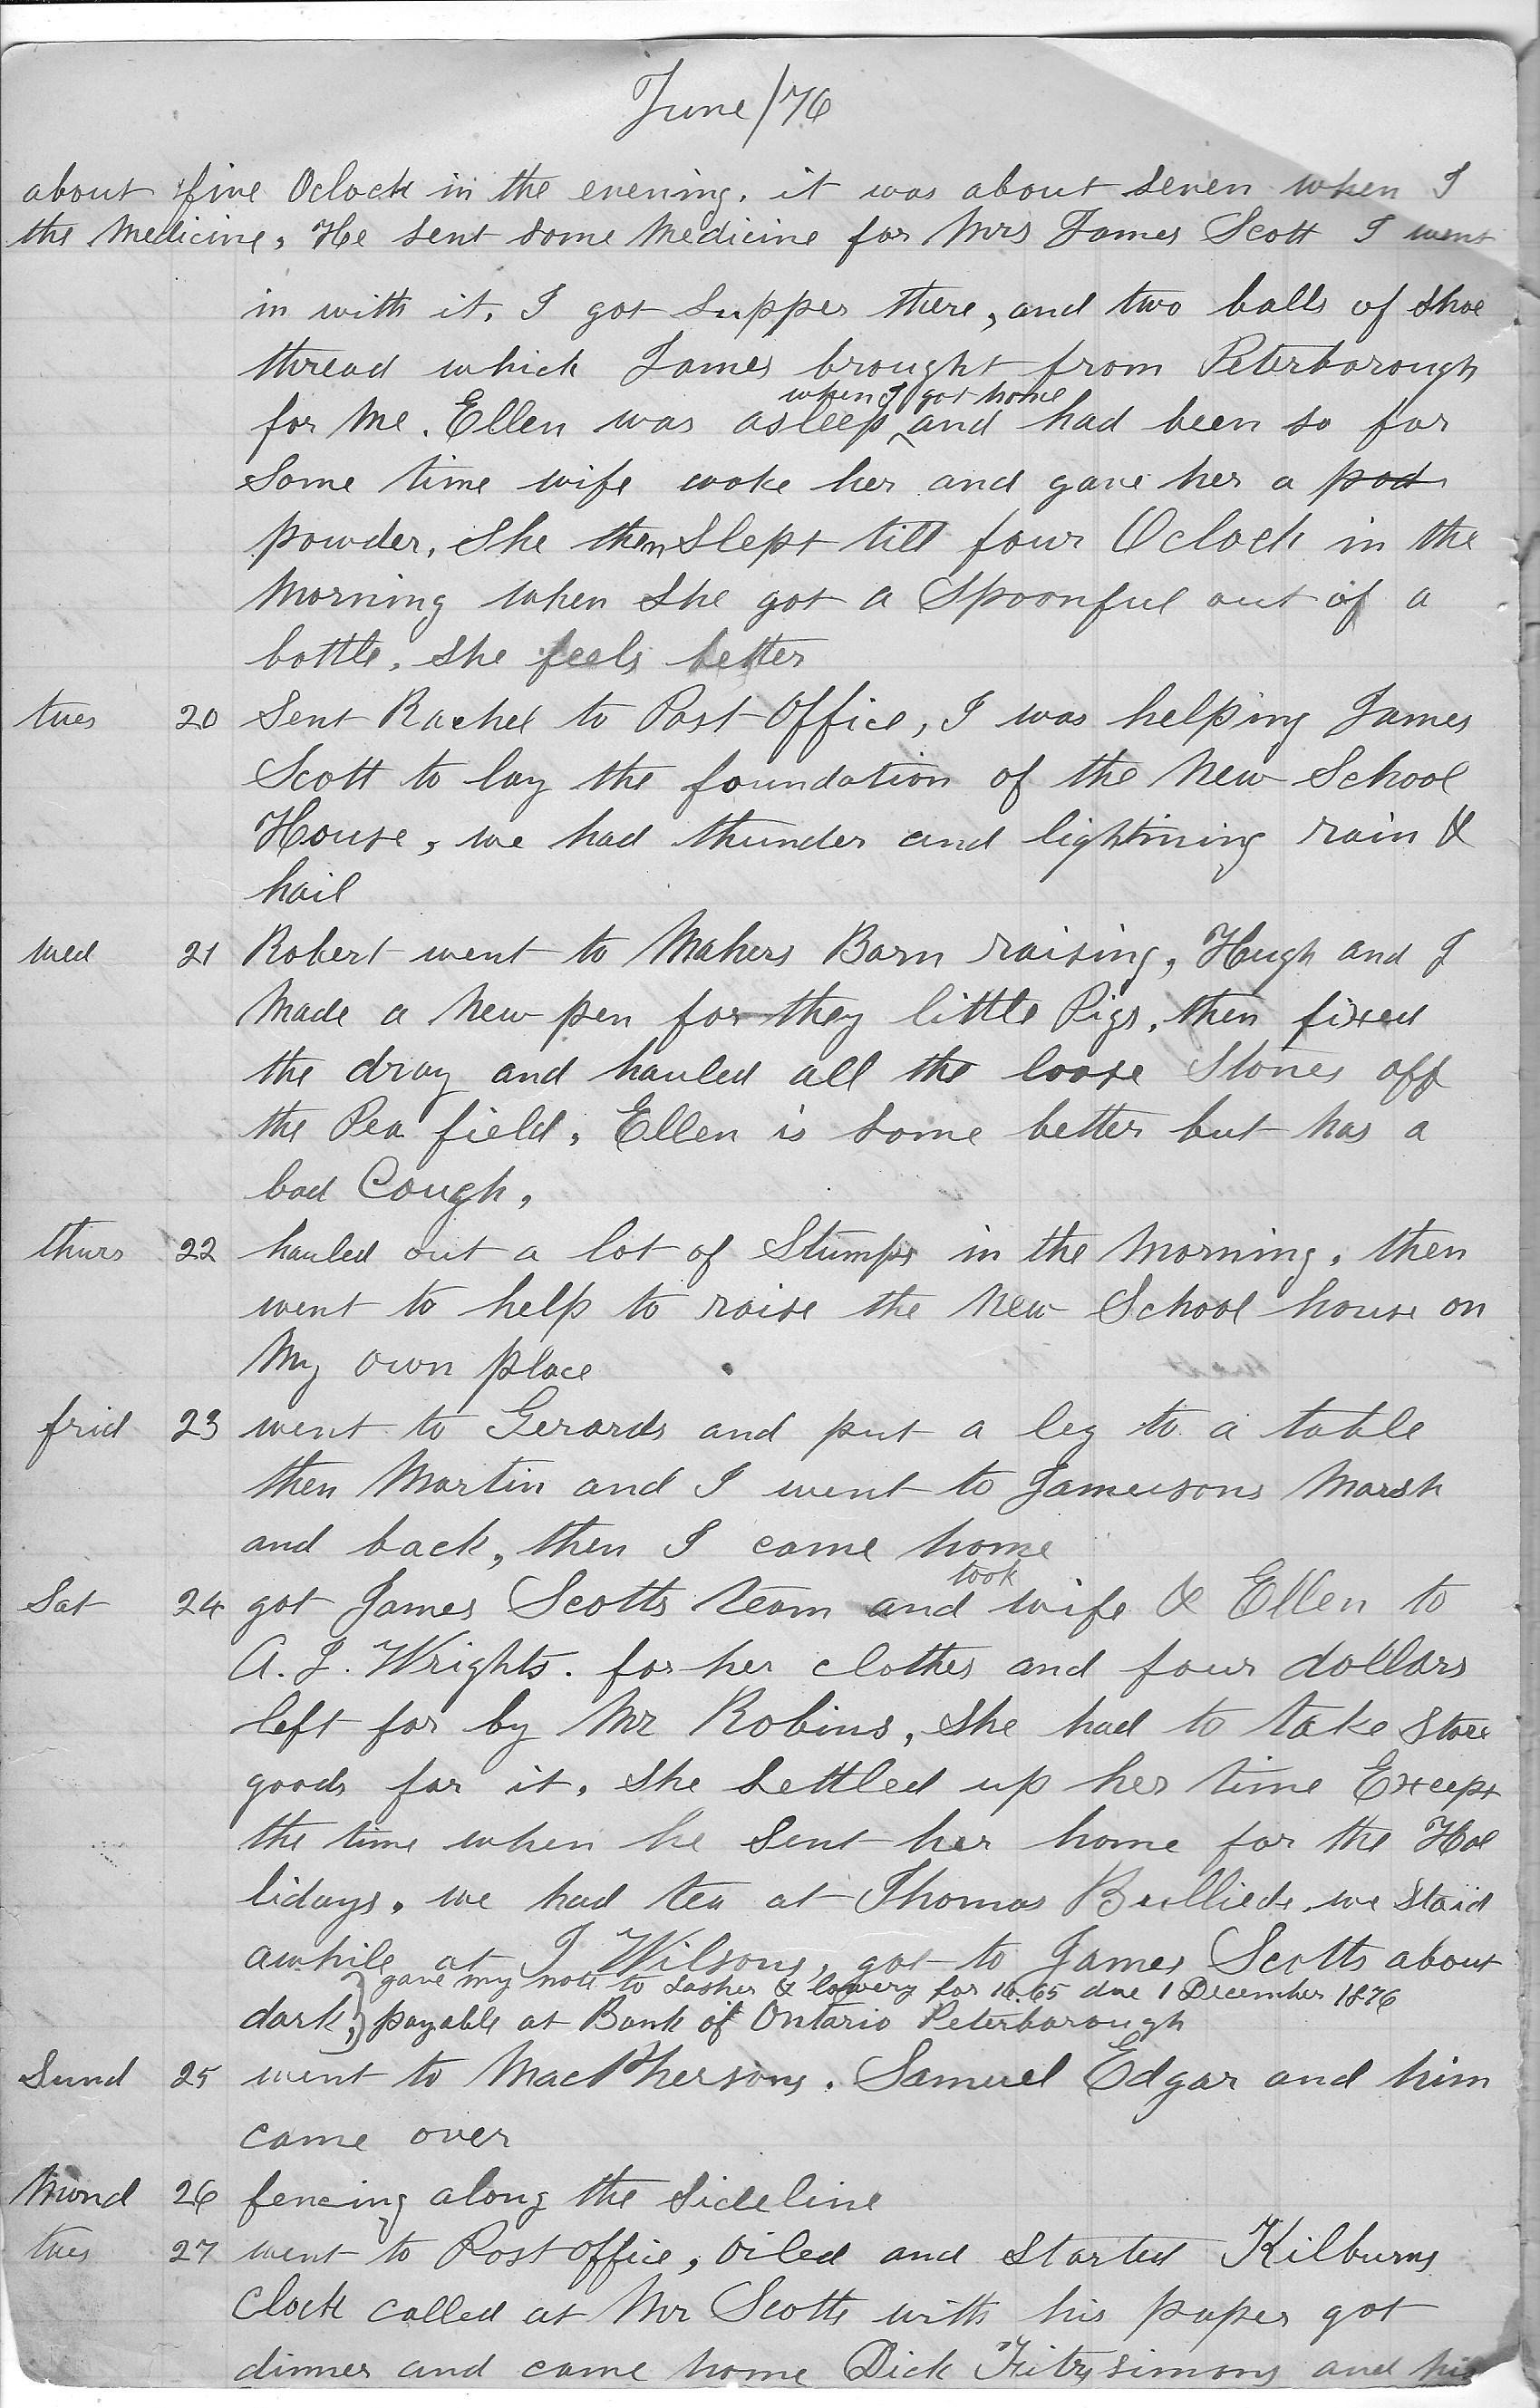 June/76
about five Oclock in the evening. it was about seven when I
the Medicine, He sent some Medicine for Mrs James Scott I went
in with it. I got supper there, and two balls of shoe
thread which James brought from Peterborough
when I got home
for Me. Ellen was asleep ^ and had been so for
Some time wife woke her and gave her a pod
powder. She then slept till four Oclock in the
Morning when she got a Spoonful out of a
bottle. she feels better
tues 20 Sent Rachel to Post Office, I was helping James
Scott to lay the foundation of the New School
House, we had thunder and lightining rain &
hail
wed 21 Robert went to Mahers Barn raising, Hugh and I
Made a New pen for they little Pigs, then fixed
the dray and hauled all the loose Stones off
the Pea field. Ellen is some better but has a
bad Cough,
thurs 22 hauled out a lot of Stumps in the Morning. then
went to help to raise the New School house on
My own place
frid 23 went to Gerards and put a leg to a table
then Martin and I went to Jamiesons Marsh
and back, then I came home
took
Sat 24 got James Scotts team and wife & Ellen to
A. J. Wrights. for her clothes and four dollars
left for by Mr Robins, She had to take store
goods for it. she settled up her time Except
the time when he sent her home for the Hol
lidays. we had tea at Thomas Bullieds. we staid
awhile at J Wilsons, got to James Scotts about
gave my note to Lasher & lowery for 10.65 due 1 December 1876
dark, } payable at Bank of Ontario Peterborough
Sund 25 went to MacPhersons. Samuel Edgar and him
came over
Mond 26 fencing along the sideline
tues 27 went to Post office, oiled and started Kilburns
Clock called at Mr Scotts with his paper got
dinner and came home Dick Fitzsimons and his